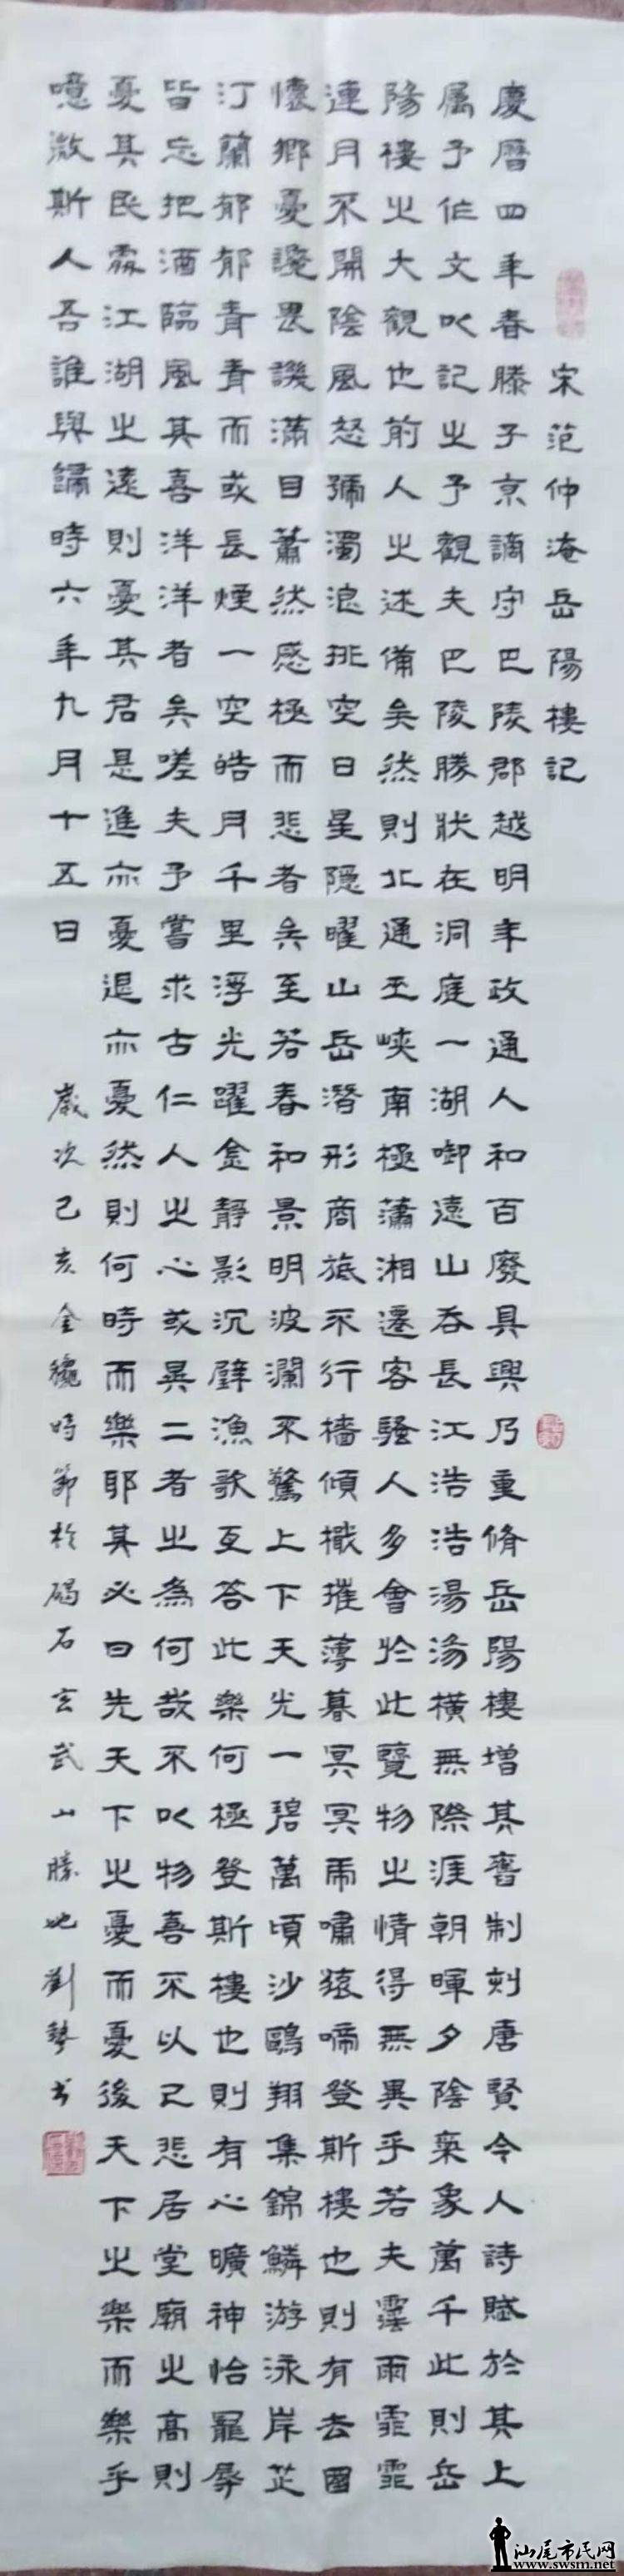 宋范仲淹岳陽樓記
慶曆四年春滕子京謫守巴陵郡越明年政通人和百廢具興乃重脩岳陽樓增其舊制刻唐賢今人詩賦於其上
属予作文以記之予觀夫巴陵勝狀在洞庭一湖啣遠山吞長江浩浩湯湯橫無際涯朝暉夕陰氣象萬千此則岳
陽樓之大觀也前人之述備矣然則北通巫峽南極瀟湘遷客騷人多會於此覽物之情得無異乎若夫霪雨霏霏
連月不開陰風怒號濁浪排空日星隱曜山岳潛形商旅不行檣傾檝摧薄暮冥冥虎嘯猿啼登斯樓也則有去國
懷鄉憂讒畏譏滿目蕭然感極而悲者矣至若春和景明波瀾不驚上下天光一碧萬頃沙鷗翔集錦鱗游泳岸芷
汀蘭郁郁青青而或長煙一空皓月千里浮光躍金靜影沉璧漁歌互答此樂何極登斯樓也則有心曠神怡寵辱
皆忘把酒臨風其喜洋洋者矣嗟夫予嘗求古仁人之心或異二者之為何哉不以物喜不以己悲居堂廟之高則
憂其民處江湖之遠則憂其君是進亦憂退亦憂然則何時而樂耶其必曰先天下之憂而憂後天下之樂而樂乎
噫微斯人吾誰與歸時六年九月十五日
歲次己亥金龝時節於碣石玄武山勝地劉書
汕尾市民网
www.swsm.net